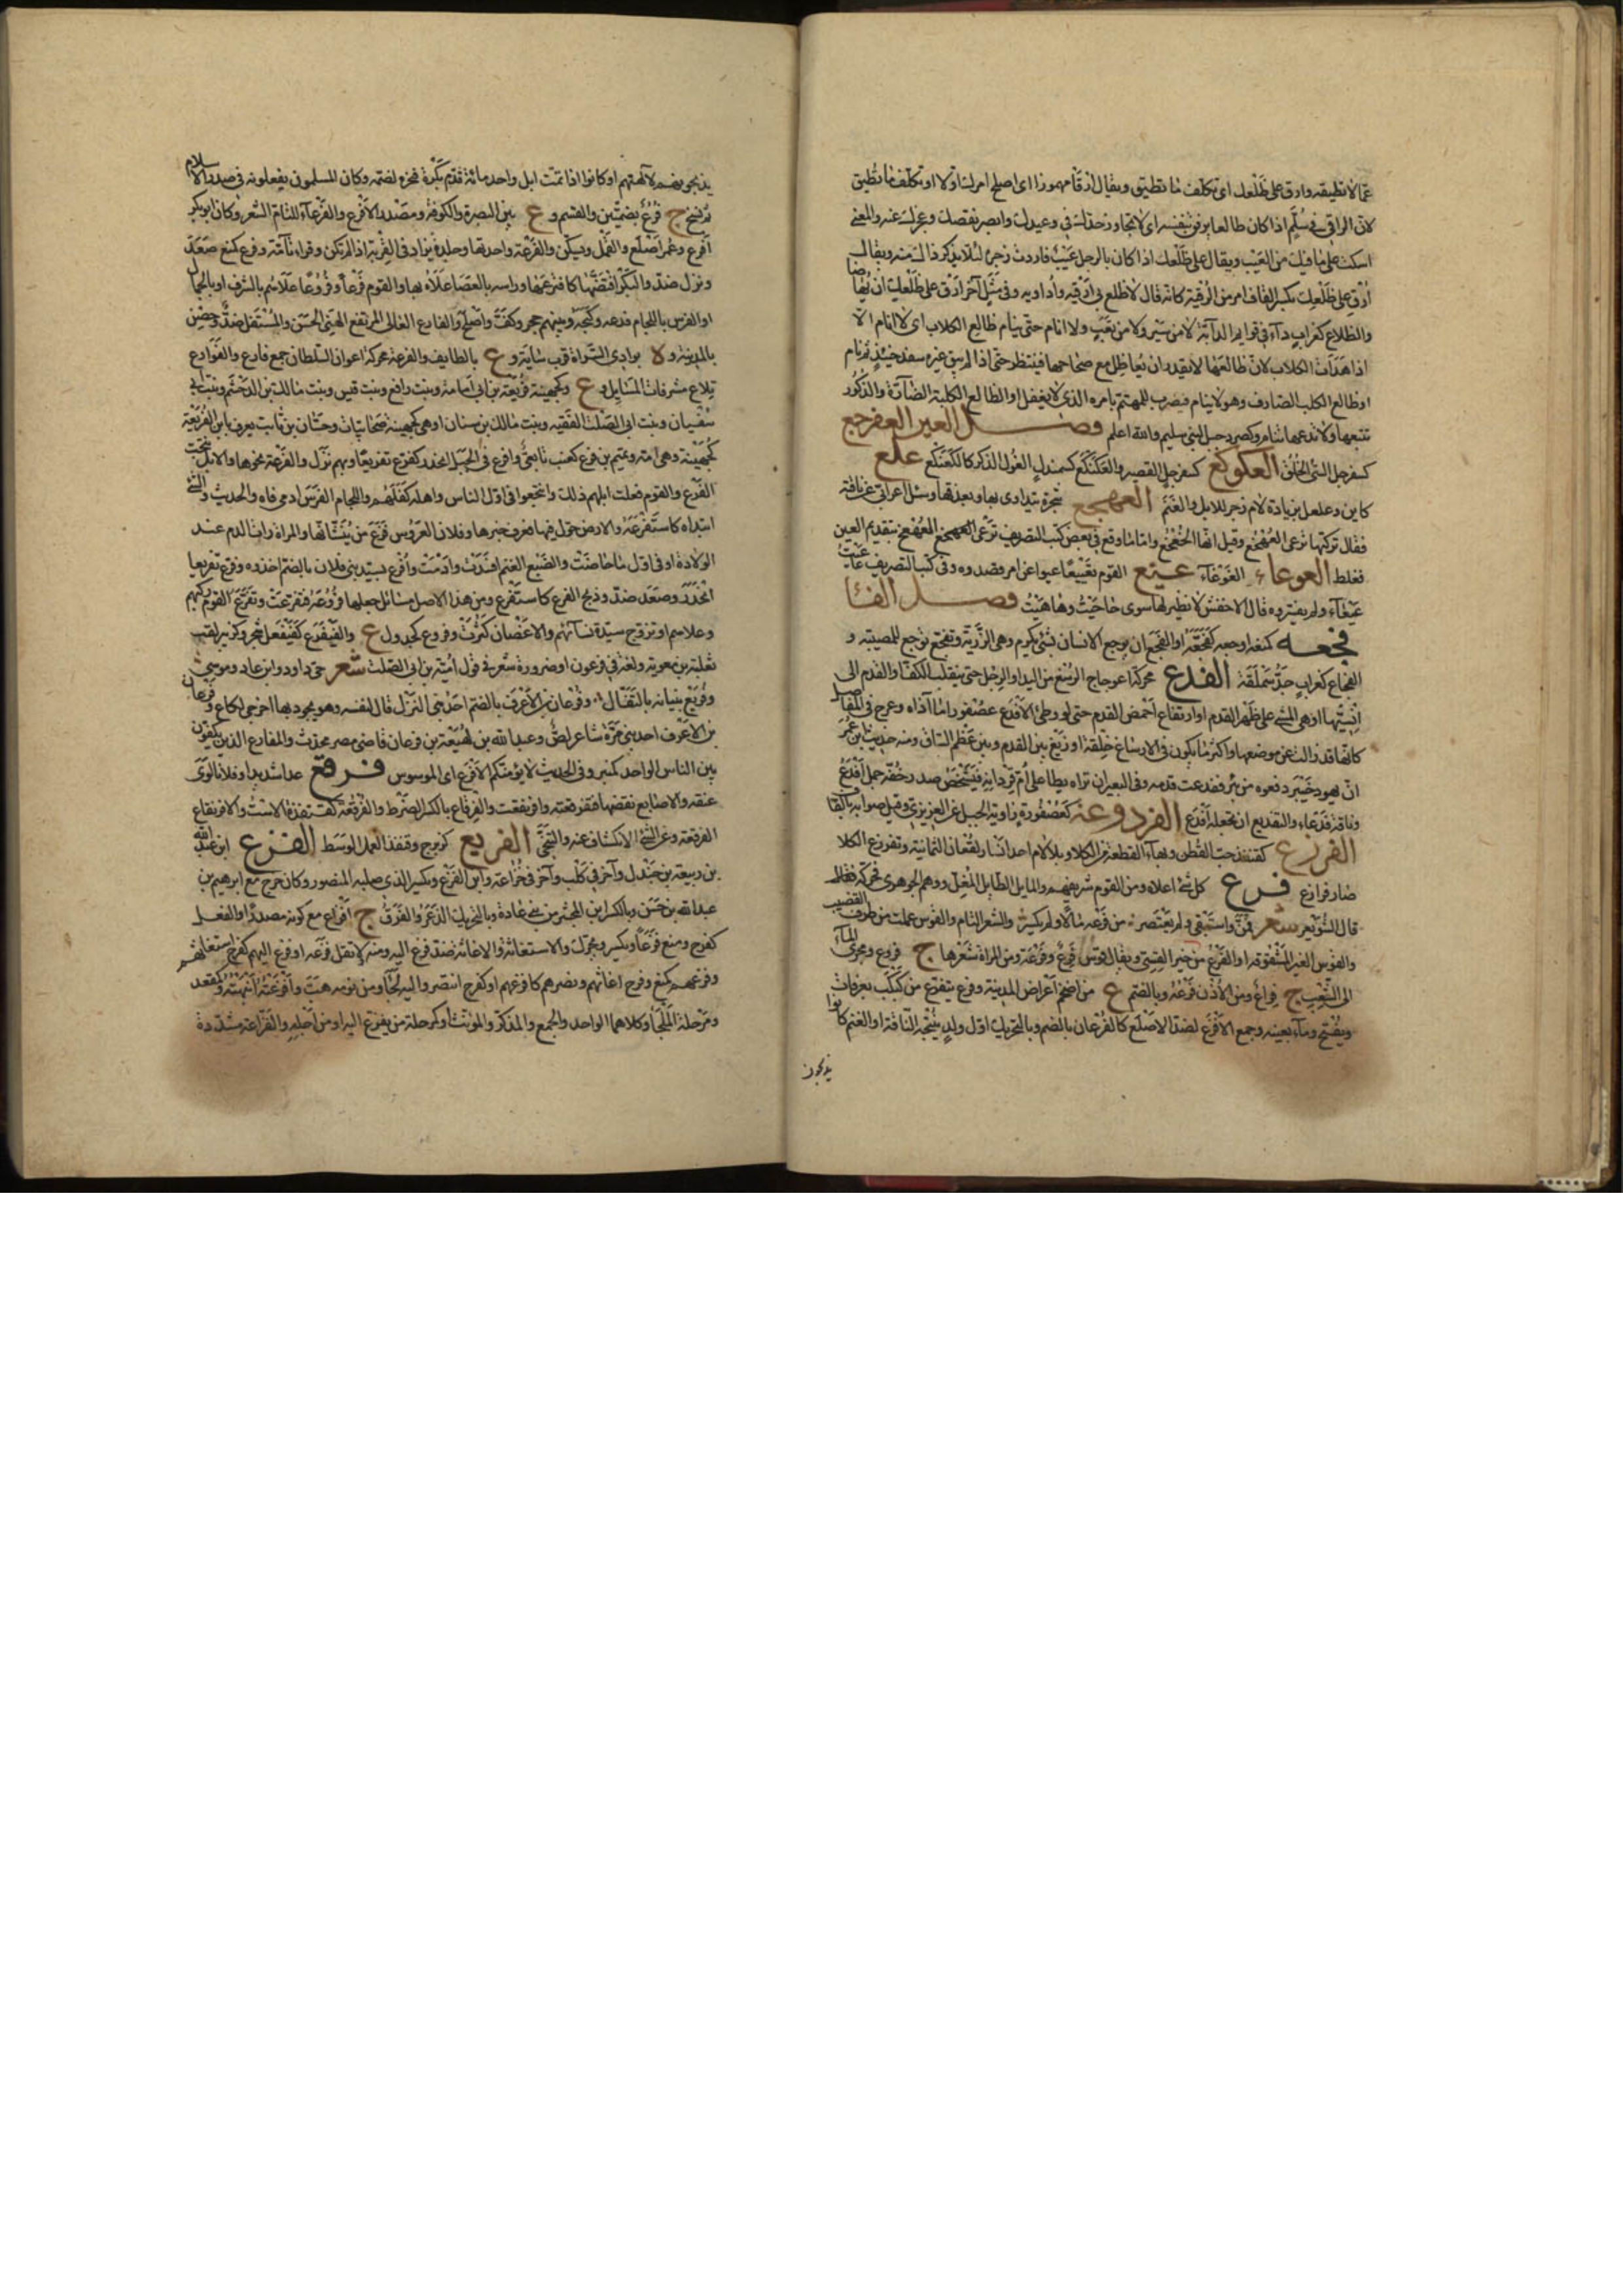 عمّا لا تطيقه وارق على ظلعك اى تكلّف ما تطيق ويقال ارقأ مهموزا اى اصلح امرك اولا او تكلّف ما تطيق
لانّ الراقى فى سُلّم اذا كان ظالعا يرفق بنفسه اى لا تجاوز حدّك فى وعيدك وابصر نقصك وعجزك عنه والمعنى
اسكت على ما فيك من العيب ويقال قِ على ظلعك اذا كان بالرجل عيب فاردت زجره لئلا يذكر ذلك منه ويقال
ارْقَ على ظلعك بكسر القاف امر من الرقية كانّه قال لا ظلع بى ارقيه واداويه وفى مثل آخر ارق على ظلعك ان يُهاضا
والظلاع كغراب داء فى قوايم الدابّة لا من سير ولا من تعب ولا انام حتى ينام ظالع الكلاب اى لا انام الا
اذا هدأت الكلاب لانّ ظالعها لا يقدر ان يُعاظل مع صحاحها فينتظر حتى اذا لم يبق غيره سفد حينئذ ثم نام
او ظالع الكلب الصارف وهو لا ينام فيضرب للمهتمّ بامره الذى لا يغفل او الظالع الكلبة الصارفة والذكور
تتبعها ولا تدعها تنام وكصرد جبل لبنى سليم والله اعلم فصل العين العفرجع
كسفرجل السّئ الخُلُق العكوكع كسفرجل القصير والعكنكع كسمندل الغول الذكر كالكعنكع علع
كاين وعلعل بزيادة لام زجر للابل والغنم العهخع شجرة يتداوى بها وبعقها وسئل اعرابى عن ناقته
فقال تركتها ترعى العهخع وقيل انها الخعخع وامّا ما وقع فى بعض كتب التصريف ترعى العهخع العهعخ بتقديم العين
فغلط العوعاء الغوغاء عيّع القوم تعييعًا عيوا عن امر قصدوه وفى كتب التصريف عاعيت
عيعاء ولم يفسّروه قال الاخفش لا نظير لها سوى حاحيت وهاهيت فصل الفا
فجعه كمنعه اوجعه كفجّعه او الفجع ان يوجع الانسان بشئ يكرم وهى الرزيّة وتفجّع توجّع للمصيبة و
الفدع محركة اعوجاج الرسغ من اليد او الرجل حتى ينقلب الكفّ او القدم الى
انسيّها او هو المشى على ظهر القدم او ارتفاع اخمص القدم حتى لو وطئ الافدع عصفورا ما آذاه وعوج فى المفاصل
كانّها قد زالت عن موضعها واكثر ما يكون فى الارساغ خلقة او زيغ بين القدم وبين عظم الساق ومنه حديث ابن عمر
انّ يهود خيبر دفعوه من بيت ففدعت قدمه وفى البعير ان تراه يطأ على امّ قردانه فيشخص صدر خفّه جمل افدع
وناقة فدعاء والتفديع ان تجعله افدع الفردوعة كعصفورة زاوية الجبل عن العزيزى وقيل صوابه بالقاف
الفرزع كقنفذ حبّ القطن وبهاء القطعة من الكلا وبلا لام احد انسار لقمان الثمانية وتفرزع الكلا
صار فرازع فرع كل شئ اعلاه ومن القوم شريفهم والمال الطائل المعدّ ووهم الجوهرى فحركه
قال الشويعر شعر فمنّ واستبقى ولم يعتصر من فرعه مالا ولم يكسر والشعر التام والقوس عملت من طرف القضيب
والقوس الغير المشقوقة او الفرع من خير القسىّ ويقال قوس فرع وفرعة ومن المراة شعرها ج فروع ومجرى الماء
الى الشعب ج فراع ومن الاذن فرعه وبالضم ع من اضخم اعراض المدينة وفرع يتفرع من كبكب بعرفات
ويفتح وماء بعينه وجمع الافرع لضدّ الاصلع كالفرعان بالضم وبالتحريك اوّل ولد ينتجه الناقة او الغنم كانوا
يذبحونه
يذبحونه لآلهتهم او كانوا اذا تمّت ابل واحد مائة قدّم بكرة فنحره لصنمه وكان المسلمون يفعلونه فى صدر الاسلام
ثم نسخ ج فُرُع بضمتين والقسم و ع بين البصرة والكوفة ومصدر الافرع والفرعاء للتامّ الشعر وكان ابو بكر
افرع وعمر اصلع والقمل ويسكّن والفرعة واحدتها وجلدة تزاد فى القربة اذا لم تكن وفراء تامّة وفرع كمنع صعد
ونزل ضدّ والبكر افتضّها كافترعها وراسه بالعصا علاه بها والقوم فَرعًا وفُروعًا علاهم بالشرف او بالجمال
او الفرس باللجام قدعه وكبحه وبينهم حجز وكفّ واصلح والفارع العالى المرتفع الهيّئ الحسن والمستفل ضدّ وحصن
بالمدينة و ة بوادى السّراة قرب ساية و ع بالطايف والفرعة محركة اعوان السلطان جمع فارع والفوارع
تلاع مشرفات المسايل و ع وكجهينة فريعة بن ابى امامة وبنت رافع وبنت قيس وبنت مالك بن الدخشم وبنت ابى
سفيان وبنت ابى الصلت الفقيه وبنت مالك بن سنان او هى كجهينة صحابيات وحسّان بن ثابت يعرف بابن الفريعة
كجهينة وهى امّه وتميم بن فرع كعنب تابعىّ وافرع فى الجبل انحدر كفرّع تفريعًا وبهم نزل والفرعة نحرها والابل نتجت
الفرع والقوم فعلت ابلهم ذلك وانتجعوا فى اوّل الناس واهله كفلهم واللجام الفرس ادمى فاه والحديث والشئ
ابتداه كاستفرعه والارض جوّل فيها فعرف خبرها وفلان العروس فرغ من غشيانها والمراة رات الدم عند
الولادة او فى اوّل ما حاضت والضبع الغنم افسدت وادمت وافرع بسيّد بنى فلان بالضم اخذوه وفرّع تفريعا
انحدر وصعد ضدّ وذبح الفرع كاستفرع ومن هذا الاصل مسائل جعلها فروعه فتفرّعت وتفرّع القوم ركبهم
وعلاهم او تزوّج سيّدة نسائهم والاغصان كثرت وفروع كجدول ع والفيفرع كفيفعل شجر وكزبير لقب
ثعلبة بن معوية ولغة فى فرعون او ضرورة شعر فى قول اميّة بن ابى الصلت شعر حىّ داود وابن عاد وموسى
وفريع بنيانه بالثقال وفرعان بن الاعرف بالضم احد بنى النزل قال لنفسه وهو يجود بها اخرجى لكاع وفرعان
بن الاعرف احد بنى مرّة شاعر لصّ وعبد الله بن لهيعة بن فرعان قاضى مصر محدّث والمفارع الذين يكفّون
بين الناس الواحد كمنبر وفى الحديث لا يؤمّنّكم الافرع اى الموسوس فرقع عدا شديدا وفلانا لوى
عنقه والاصابع نقضها فتفرقعت وافرنقعت والفرقاع بالكسر الضرط والفرقعة كقنفذة الاست والافرنقاع
الفرقعة وعن الشئ الانكشاف عنه والتنحّى الفريع كزبرج وقنفذ القمل الوسط الفزع ابن عبد الله
بن ربيعة بن جندل وآخر فى كلب وآخر فى خزاعة وابن الفزع وبكسر الذى صلبه المنصور وكان خرج مع ابرهيم بن
عبد الله بن حسن وبالكسر ابن المجشّر من بنى عادة وبالتحريك الذعر والفرق ج افزاع مع كونه مصدرًا والفعل
كفرح ومنع فزعًا ويكسر ويحرّك والاستغاثة والاغاثة ضدّ فزع اليه ومنه لا تقل فزعه او فزع اليهم كفرح استغاثهم
وفزعهم كمنع وفرح اغاثهم ونصرهم كافزعهم او كفرح انتصر واليه لجأ ومن نومه هبّ وافزعته انبهته وكمقعد
ومرحلة الملجأ وكلاهما الواحد والجمع والمذكر والمؤنث او كمرحلة من يفزع اليه او من اجله والفزّاعة مشدّدة